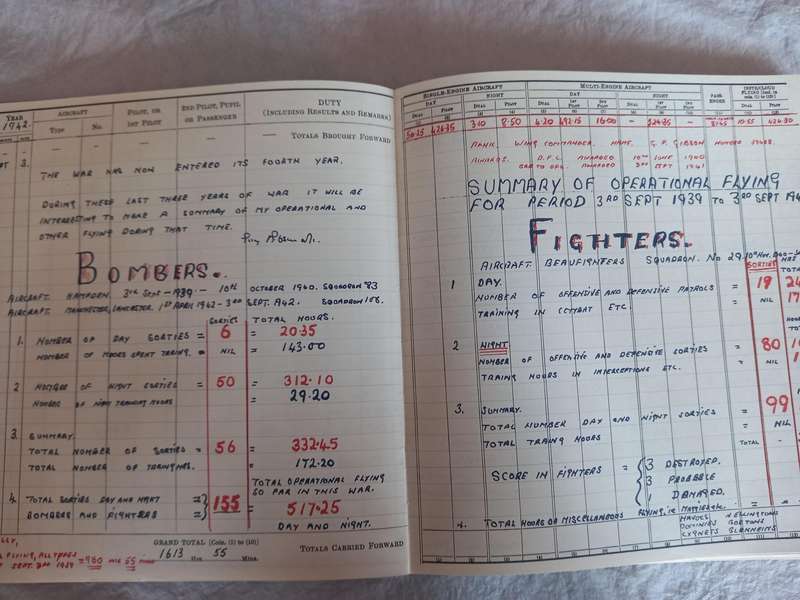 YEAR
1942.
AIRCRAFT
Type
No.
PILOT, OR
1ST PILOT
2ND PILOT, PUPIL
OR PASSENGER
DUTY
(INCLUDING RESULTS AND REMARKS)
TOTALS BROUGHT FORWARD
3.
THE WAR HAS NOW ENTERED ITS FOURTH YEAR.
DURING THESE LAST THREE YEARS OF WAR IT WILL BE
INTERESTING TO MAKE A SUMMARY OF MY OPERATIONAL AND
OTHER FLYING DURING THAT TIME.
BOMBERS.
AIRCRAFT. HAMPDEN. 3rd Sept - 1939 - 10th OCTOBER 1940. SQUADRON 83
AIRCRAFT MANCHESTER, LANCASTER 1ST APRIL 1942 - 3RD SEPT. 1942. SQUADRON 106.
SORTIES
TOTAL HOURS.
1. NUMBER OF DAY SORTIES = 6 = 20.35
NUMBER OF HOURS SPENT TRAING. = NIL = 143.00
2 NUMBER OF NIGHT SORTIES = 50 = 312.10
NUMBER OF NIGHT TRAINING HOURS = 29.20
3. SUMMARY.
TOTAL NUMBER OF SORTIES = 56 = 332.45
TOTAL NUMBER OF TRAING HRS. = 172.20
TOTAL OPERATIONAL FLYING
SO FAR IN THIS WAR.
4. TOTAL SORTIES DAY AND NIGHT =
BOMBERS AND FIGHTERS = } 155 = 517.25
DAY AND NIGHT.
GRAND TOTAL [Cols. (1) to (10)]
1613 Hrs. 55 Mins.
TOTALS CARRIED FORWARD
FLYING, ALL TYPES
SEPT. 3RD 1939 = 980 HRS 55 MINS
SINGLE-ENGINE AIRCRAFT
MULTI-ENGINE AIRCRAFT
DAY
NIGHT
DAY
NIGHT
PASS-
ENGER
DUAL
PILOT
DUAL
PILOT
DUAL
1ST PILOT
2ND PILOT
DUAL
PILOT
50.25 426.35 3.10 8.50 4.20 492.15 16.00 - 524.35 - 81.45 10.55 424.30
RANK. WING COMMANDER. NAME. G. P. GIBSON
AWARDS. D.F.C. AWARDED 10TH JUNE 1940
BAR TO DFC. AWARDED SEPT 1941
SUMMARY OF OPERATIONAL FLYING
FOR PERIOD 3RD SEPT 1939 TO 3RD SEPT
FIGHTERS.
AIRCRAFT. BEAUFIGHTERS SQUADRON. No 29.
SORTIES
TOTAL
1 DAY.
NUMBER OF OFFENSIVE AND DEFENSIVE PATROLS = 19
TRAINING IN COMBAT ETC. = NIL
2 NIGHT
NUMBER OF OFFENSIVE AND DEFENSIVE SORTIES = 80
TRAING HOURS IN INTERCEPTIONS ETC. = NIL
3. SUMMARY.
TOTAL NUMBER DAY AND NIGHT SORTIES = 99
TOTAL TRAING HOURS = NIL
TOTAL
SCORE IN FIGHTERS = { 3 DESTROYED.
3 PROBABLE
1 DAMAGED.
4. TOTAL HOURS OR MISCELLANEOUS FLYING, ie MAGGIES etc.
WELLINGTONS
DOMINIES GORDONS
CYGNETS BLENHEIMS